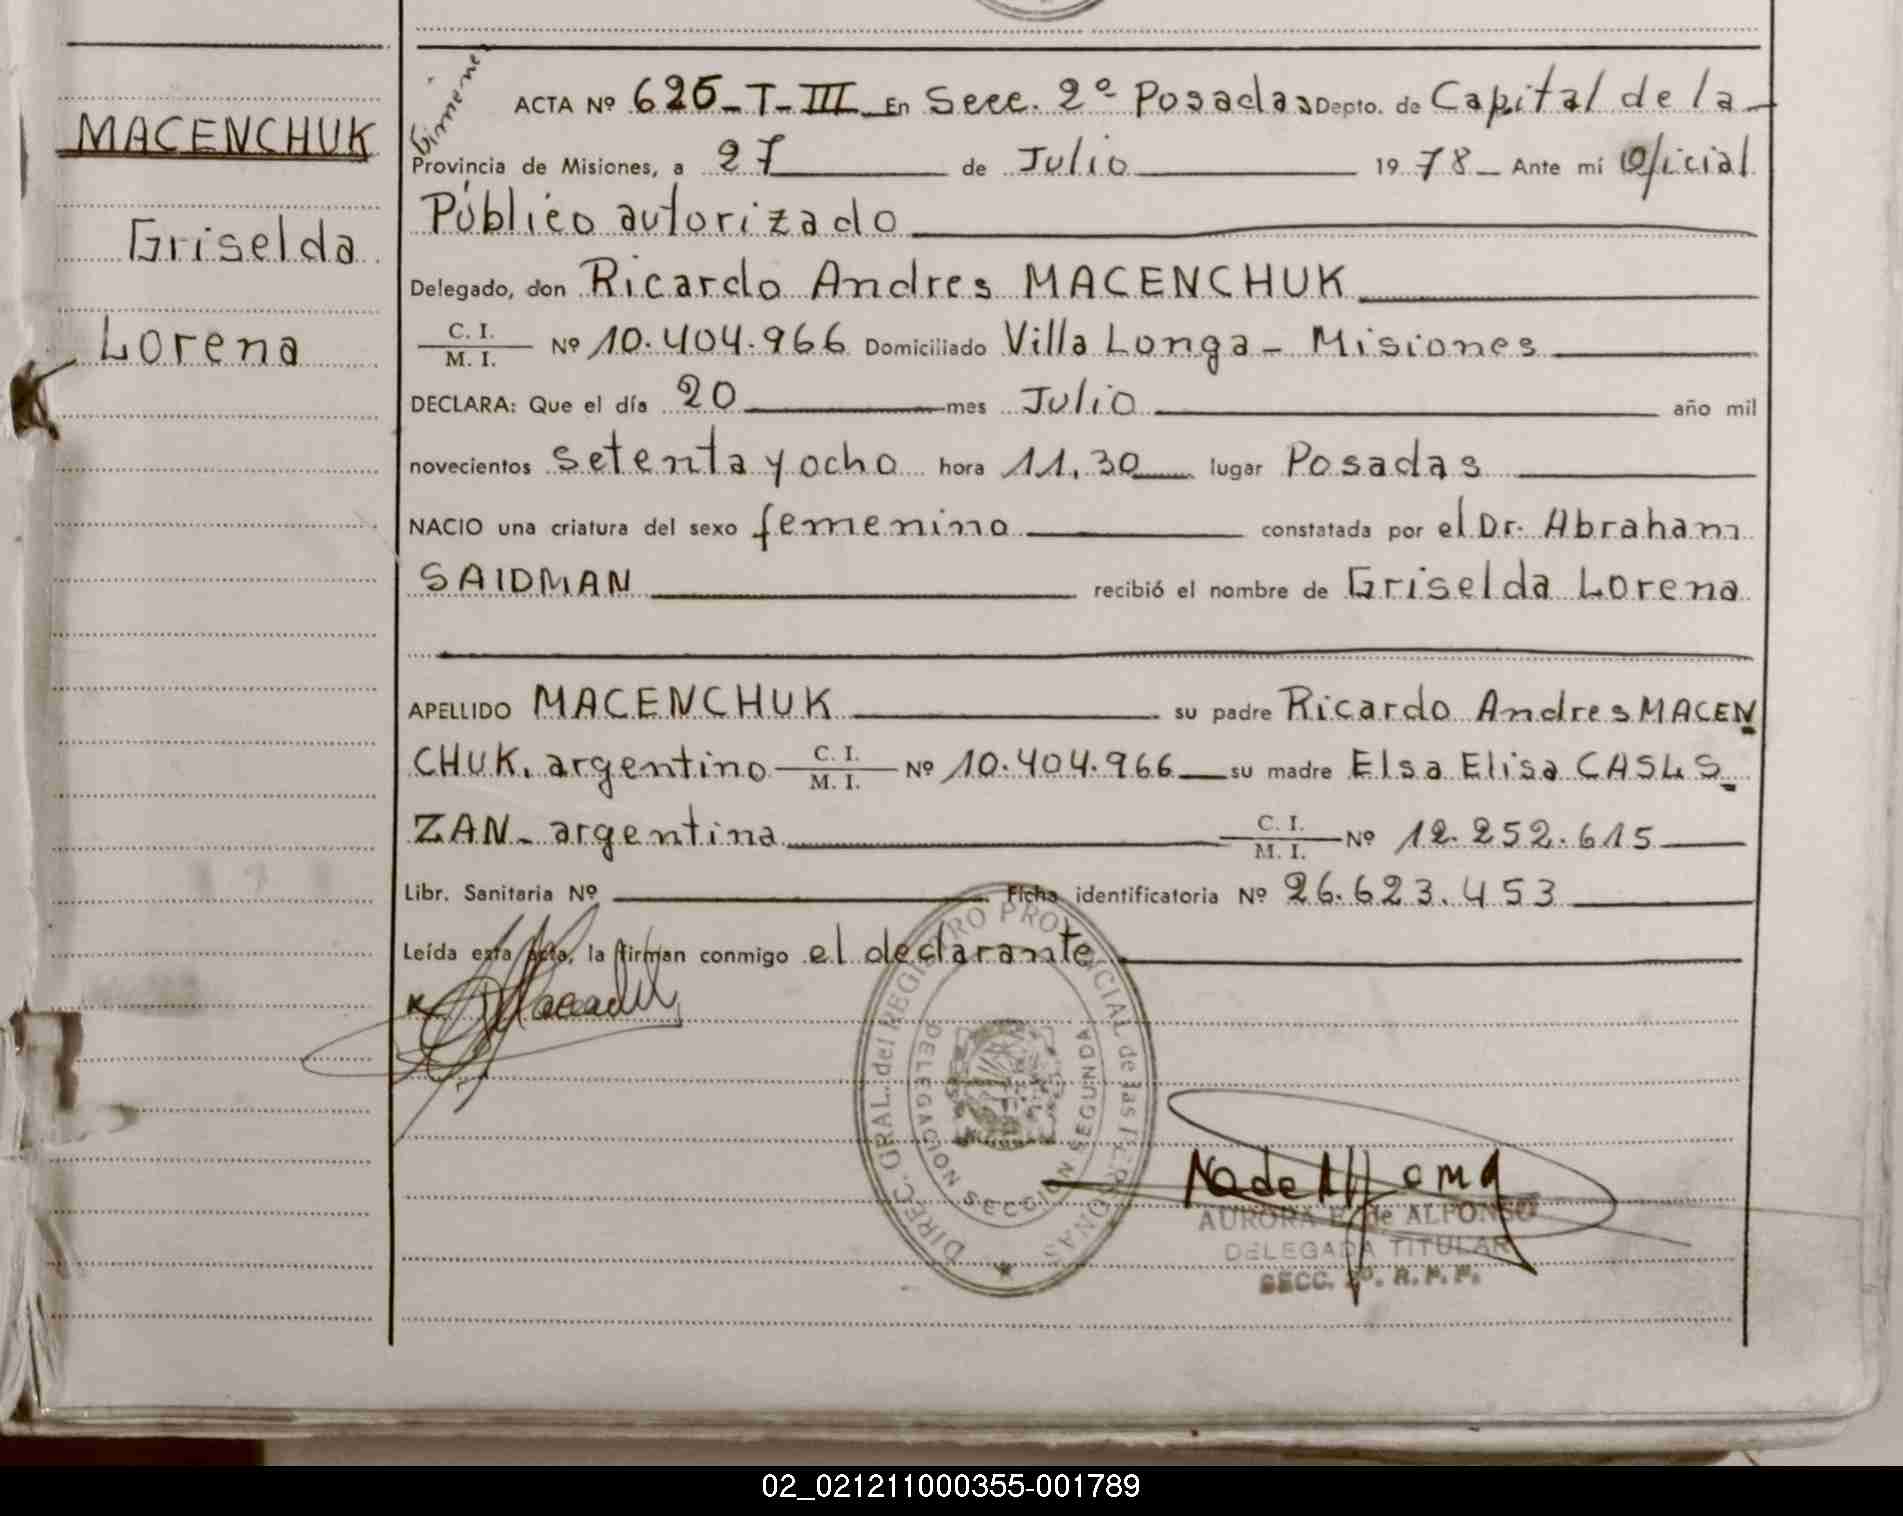 MACENCHUK
Griselda
Lorena
ACTA Nº 626-T-III En Secc. 2º Posadas Depto. de Capital de la
Provincia de Misiones, a 27 de Julio 1978 Ante mí Oficial
Público autorizado
Delegado, don Ricardo Andres MACENCHUK
C. I.
M. I. Nº 10.404.966 Domiciliado Villa Longa - Misiones
DECLARA: Que el día 20 mes Julio año mil
novecientos setenta y ocho hora 11,30 lugar Posadas
NACIO una criatura del sexo femenino constatada por el Dr. Abraham
SAIDMAN recibió el nombre de Griselda Lorena
APELLIDO MACENCHUK su padre Ricardo Andres MACEN
CHUK. argentino C. I.
M. I. Nº 10.404.966 su madre Elsa Elisa
ZAN - argentina C. I.
M. I. Nº 12.252.615
Libr. Sanitaria Nº Ficha identificatoria Nº 26.623.453
Leída esta acta, la firman conmigo el declarante
DIREC. GRAL. del REGISTRO PROVINCIAL de las PERSONAS
DELEGACION SECCION SEGUNDA
AURORA E. de ALFONSO
DELEGADA TITULAR
SECC. 2º. R. P. P.
02_021211000355-001789